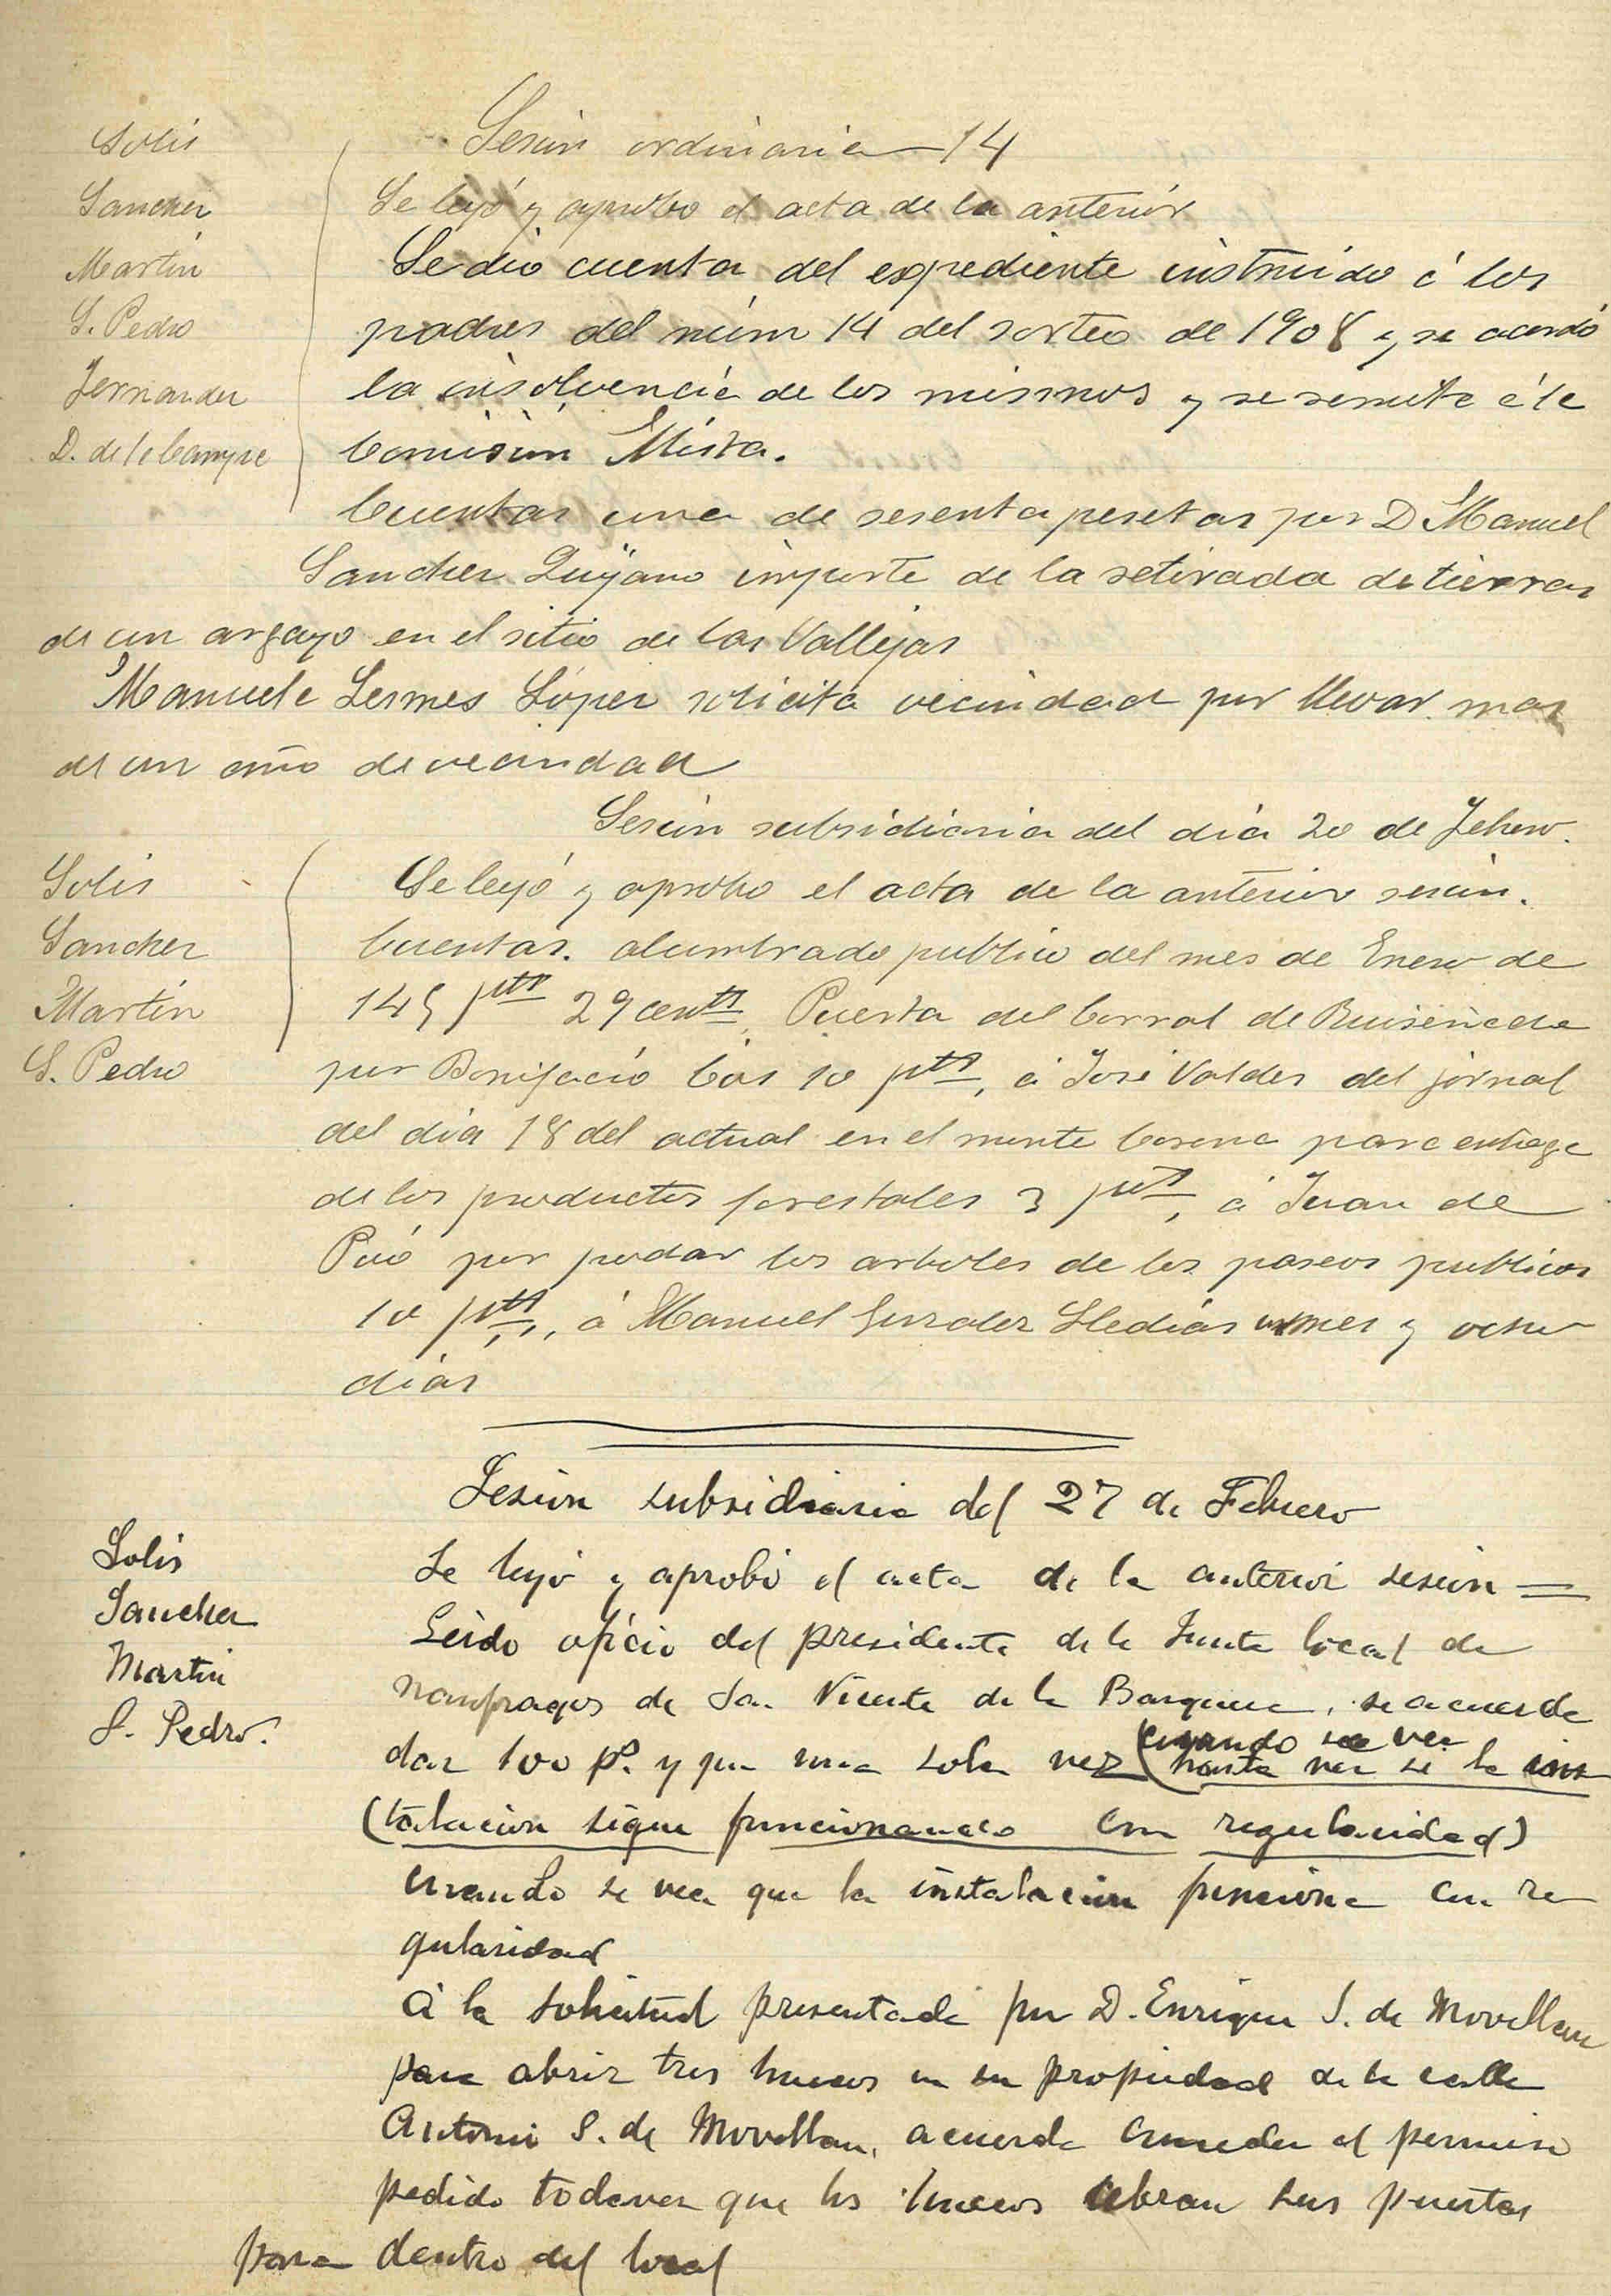 Sesión ordinaria 14
Solis
Sanchez
Martin
S. Pedro
Fernandez
D. de la Campa
Se leyó y aprobo el acta de la anterior
Se dio cuenta del expediente instruido á los
padres del núm 14 del sorteo de 1908 y se acordó
la insolvencia de los mismos y se remite á la
Comisión Mista.
Cuentas una de sesenta pesetas por D Manuel
Sanchez Quijano importe de la retirada de tierras
de un argayo en el sitio de las Vallejas
Manuela Lesmes López solicita vecindad por llevar mas
de un año de vecindad
Sesión subsidiaria del dia 20 de Febero.
Solis
Sanchez
Martin
S. Pedro
Se leyó y aprobo el acta de la anterior sesión.
Cuentas. alumbrado publico del mes de Enero de
145 ptts 29 centts. Puerta del Corral de Ruiseñada
por Bonifacio Cos 10 ptts, á José Valdes del jornal
del dia 18 del actual en el monte Corona para entrega
de los productos forestales 3 pts, á Juan de
Pió por podar los arboles de los paseos publicos
10 ptts, á Manuel Gonzalez Lledias un mes y ocho
dias
Sesión subsidiaria del 27 de Febrero
Solis
Sanchez
Martin
S. Pedro.
Se leyó y aprobó el acta de la anterior sesión =
Leido oficio del presidente de la Junta local de
naufragos de San Vicente de la Barquera, se acuerda
cuando se vea
dar 100 ps. y por una sola vez (hasta ver si la ins
(talacion sigue funcionando con regularidad)
cuando se vea que la instalacion funciona con re
gularidad
á la solicitud presentada por D. Enrique S. de Movellan
para abrir tres huecos en su propiedad de la calle
Antonio S. de Movellan, acuerda conceder el permiso
pedido toda vez que los huecos abran sus puertas
para dentro del local